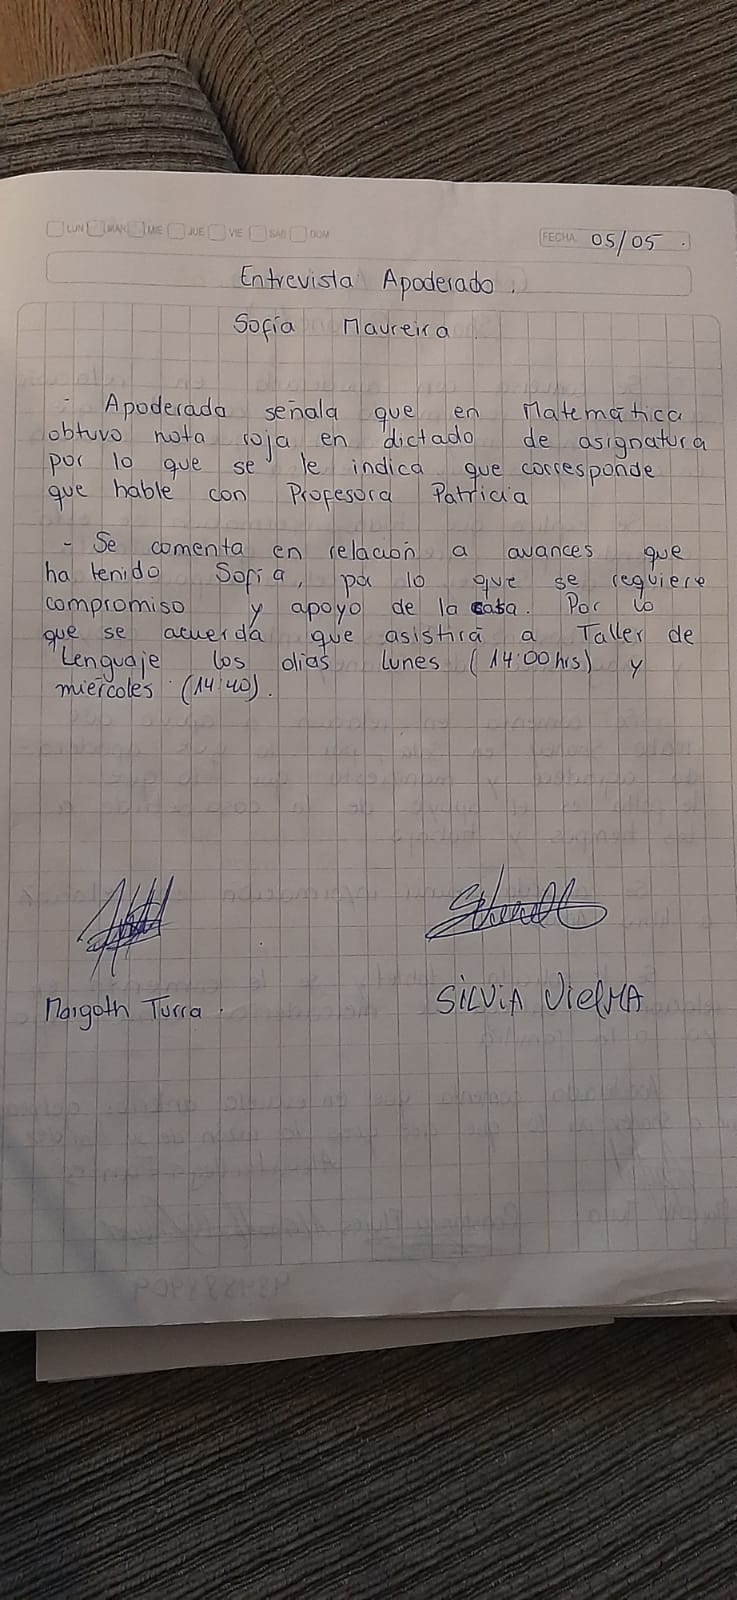 LUN MAR MIE JUE VIE SAB DOM
FECHA 05/05 .
Entrevista Apoderado .
Sofía Maureira .
- Apoderada señala que en Matemática
obtuvo nota roja en dictado de asignatura
por lo que se le indica que corresponde
que hable con Profesora Patricia
- Se comenta en relación a avances que
ha tenido Sofía, por lo que se requiere
compromiso y apoyo de la casa. Por lo
que se acuerda que asistirá a Taller de
Lenguaje los días lunes (14:00 hrs) y
miércoles (14:40).
Margoth Turra .
SILVIA VIELMA